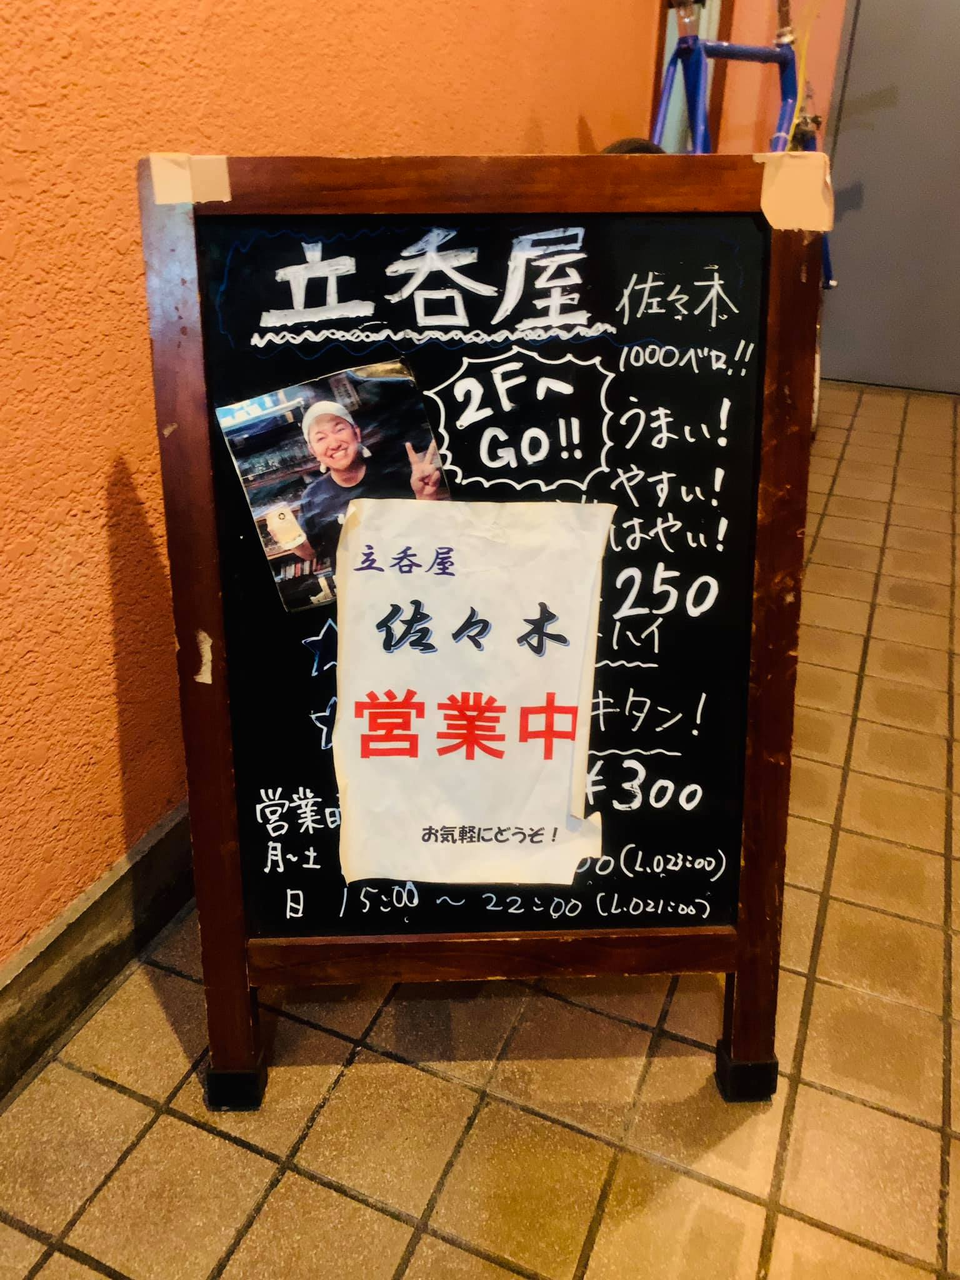 立呑屋 佐々木
1000ベロ!!
2Fへ
GO!!
うまい!
やすい!
はやい!
250
ハイ
キタン!
¥300
立呑屋
佐々木
営業中
お気軽にどうぞ!
営業時
月〜土
00(L.O23:00)
日 15:00 〜 22:00 (L.O21:00)